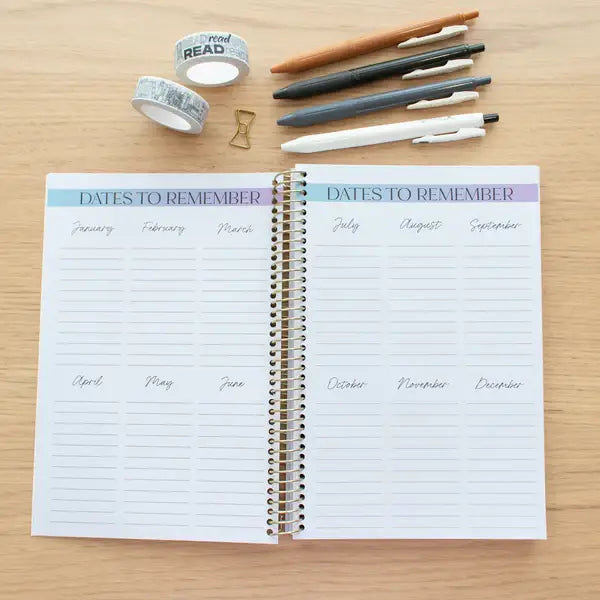 read
READ read
DATES TO REMEMBER
January February March
April May June
DATES TO REMEMBER
July August September
October November December